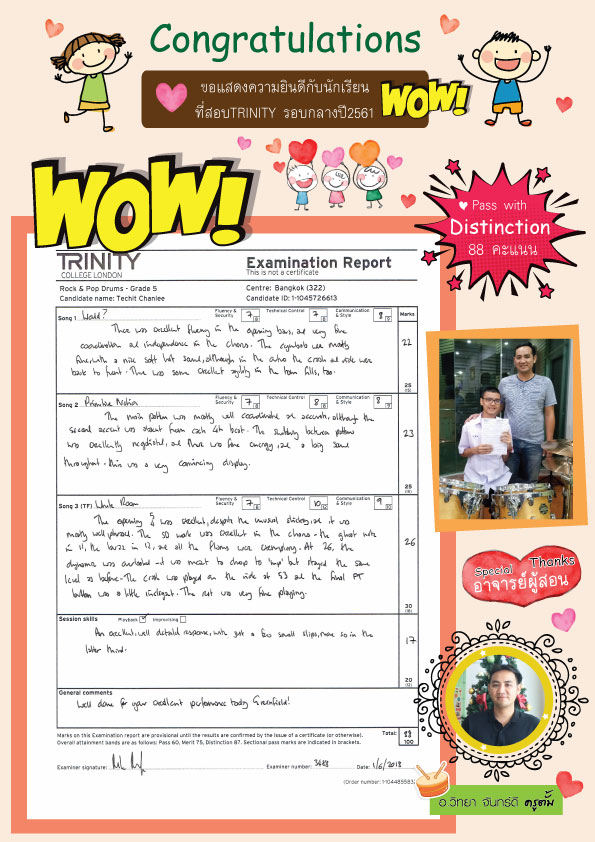 Congratulations
ขอแสดงความยินดีกับนักเรียน
ที่สอบTRINITY รอบกลางปี2561
WOW!
WOW!
♥ Pass with
Distinction
88 คะแนน
TRINITY
COLLEGE LONDON
Examination Report
This is not a certificate
Rock & Pop Drums - Grade 5
Centre: Bangkok (322)
Candidate name: Techit Chanlee
Candidate ID: 1-1045726613
Song 1
Fluency & Security 7 8
Technical Control 7 8
Communication & Style 8 9
Marks
There was excellent fluency in the opening bars, and very fine
coordination and independence in the chorus. The cymbals were mostly
fine, with a nice soft hat sound, although in the intro the crash and ride were
back to front. There was some excellent agility in the tom fills, too.
22
25
Song 2 Primitive Notion
Fluency & Security 7 8
Technical Control 8 8
Communication & Style 8 9
The main pattern was mostly well coordinated and accurate, although the
second accent was absent from each 4th beat. The switching between patterns
was excellently negotiated, and there was fine energy, and a big sound
throughout - this was a very convincing display.
23
25
Song 3 (TF) White Room
Fluency & Security 7 8
Technical Control 10 12
Communication & Style 9 10
The opening was excellent, despite the unusual sticking, and it was
mostly well phrased. The SD work was excellent in the chorus - the ghost note
in 11, the buzz in 12, and all the flams were exemplary. At 26, the
dynamic was overlooked - it was meant to drop to 'mp' but stayed the same
level as before. The crash was played on the side at 53 and the final
was a little indistinct. The rest was very fine playing.
26
30
Session skills
Playback ✓
Improvising
An excellent, well detailed response, with just a few small slips, more so in the
latter third.
17
20
General comments
Well done for your excellent performance today Greenfield!
Marks on this Examination report are provisional until the results are confirmed by the issue of a certificate (or otherwise).
Overall attainment bands are as follows: Pass 60, Merit 75, Distinction 87. Sectional pass marks are indicated in brackets.
Total: 88
100
Examiner signature:
Examiner number: 3688
Date: 1/6/2018
(Order number: 1-104485583
Special Thanks
อาจารย์ผู้สอน
อ.วิทยา จันทร์ดี ครูตั้ม